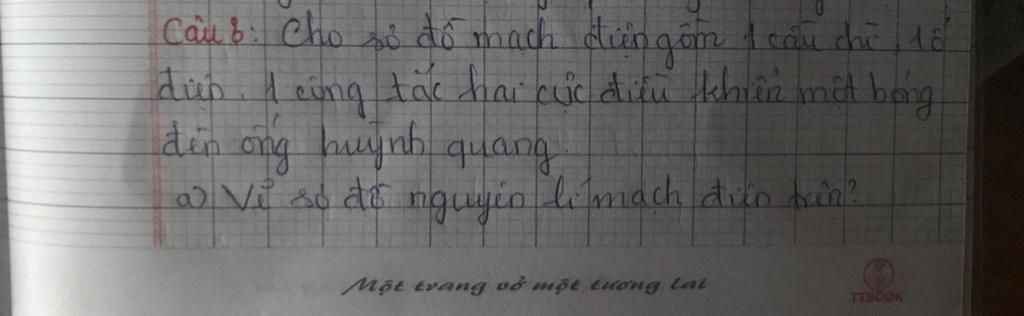 Câu 8: Cho sơ đồ mạch điện gồm 1 cầu chì, 1 ổ
điện, 1 công tắc hai cực điều khiển một bóng
đèn ống huỳnh quang.
a) Vẽ sơ đồ nguyên lí mạch điện trên?
Một trang vở một tương lai
TTBOOK